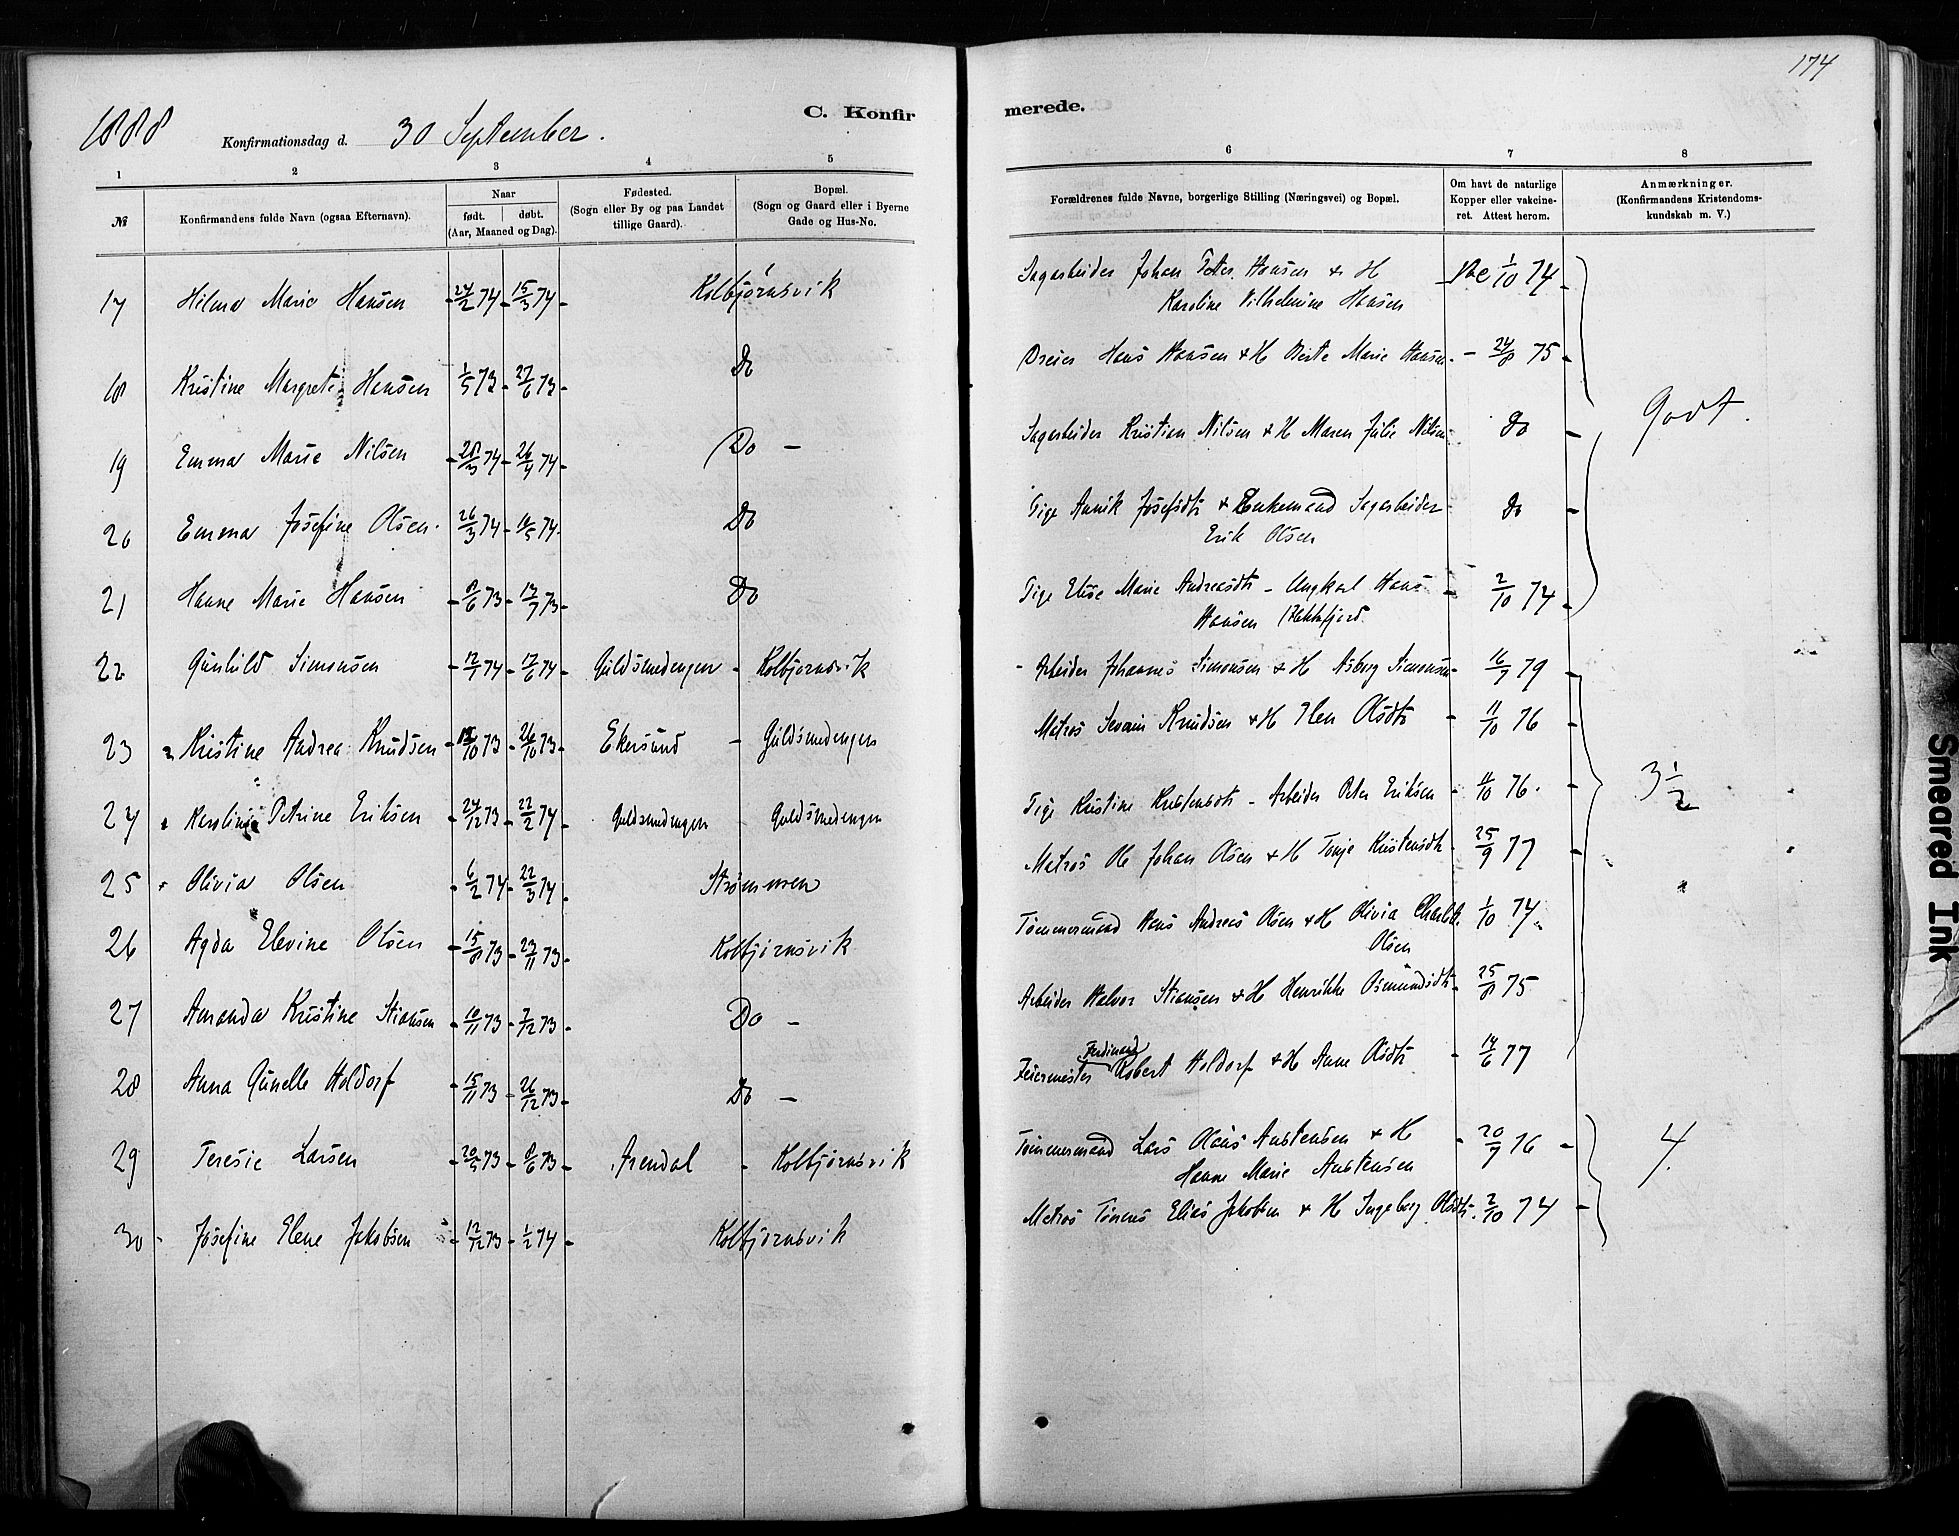 174
1888 Konfirmationsdag d. 30 September.
C. Konfirmerede.
1 2 3 4 5 6 7 8
№ Konfirmandens fulde Navn (ogsaa Efternavn). Naar født. døbt. (Aar, Maaned og Dag). Fødested. (Sogn eller By og paa Landet tillige Gaard). Bopæl. (Sogn og Gaard eller i Byerne Gade og Hus-No. Forældrenes fulde Navne, borgerlige Stilling (Næringsvei) og Bopæl. Om havt de naturlige Kopper eller vakcineret. Attest herom. Anmærkninger. (Konfirmandens Kristendomskundskab m. V.)
17 Hilma Marie Hansen 24/2 74 15/3 74 Kolbjørnsvik Sagarbeider Johan Peter Hansen & H Vac 1/10 74
Karoline Vilhelmine Hansen
18 Kristine Margrete Hansen 1/5 73 27/6 73 Do Dreier Hans Hansen & H Berte Marie Hansen 24/8 75
Godt.
19 Emma Marie Nilsen 28/3 74 26/4 74 Do Sagarbeider Kristian Nilsen & H Maren Julie Nilsen Do
20 Emma Josefine Olsen 26/3 74 74 Do Pige Annik Josefsdtr & Enkemand Sagarbeider Do
Erik Olsen
21 Hanne Marie Hansen 8/6 73 13/7 73 Do Pige Else Marie Andreasdtr - Ungkarl Hans 2/10 74
Hansen
22 Gunhild Simonsen 74 17/6 74 Guldsmedengen - Kolbjørnsvik Arbeider Johannes Simonsen & H Asborg Simonsen 16/7 79
23 Kristine Andrea Knudsen 73 26/10 73 Ekersund - Guldsmedengen Matros Severin Knudsen & H Elen Olsdtr 11/10 76
3 1/2
24 Karoline Petrine Eriksen 24/12 73 22/2 74 Guldsmedengen Guldsmedengen Pige Kristine Kristensdtr - Arbeider Peter Eriksen 11/10 76
25 Olivia Olsen 6/2 74 22/3 74 Strømmen Matros Ole Johan Olsen & H Tonje Kristensdtr 25/9 77
26 Agda Elevine Olsen 15/8 73 23/11 73 Kolbjørnsvik Tømmermand Hans Andreas Olsen & H Olivia 1/10 74
Olsen
27 Amanda Kristine Stiansen 10/11 73 7/12 73 Do - Arbeider Halvor Stiansen & H Henrikke Osmundsdtr 25/8 75
28 Anna Gunelle Holdorf 15/11 73 26/12 73 Do - Feiermester Ferdinand Robert Holdorf & H Anne Olsdtr 14/6 77
29 Teresie Larsen 20/5 73 8/6 73 Arendal - Kolbjørnsvik Tømmermand Lars Olaus Austensen & H 20/9 76 4.
Hanne Marie Austensen
30 Josefine Elene Jakobsen 12/12 73 1/2 74 Kolbjørnsvik Matros Tønnes Elias Jakobsen & H Ingeborg Olsdtr 2/10 74
Smeared Ink